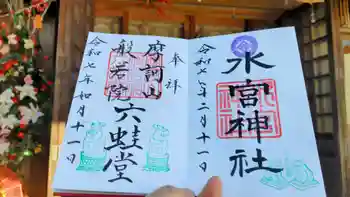 奉拝
水宮神社
令和七年二月十一日
奉拝
摩訶山
般若院
六蛙堂
令和七年如月十一日